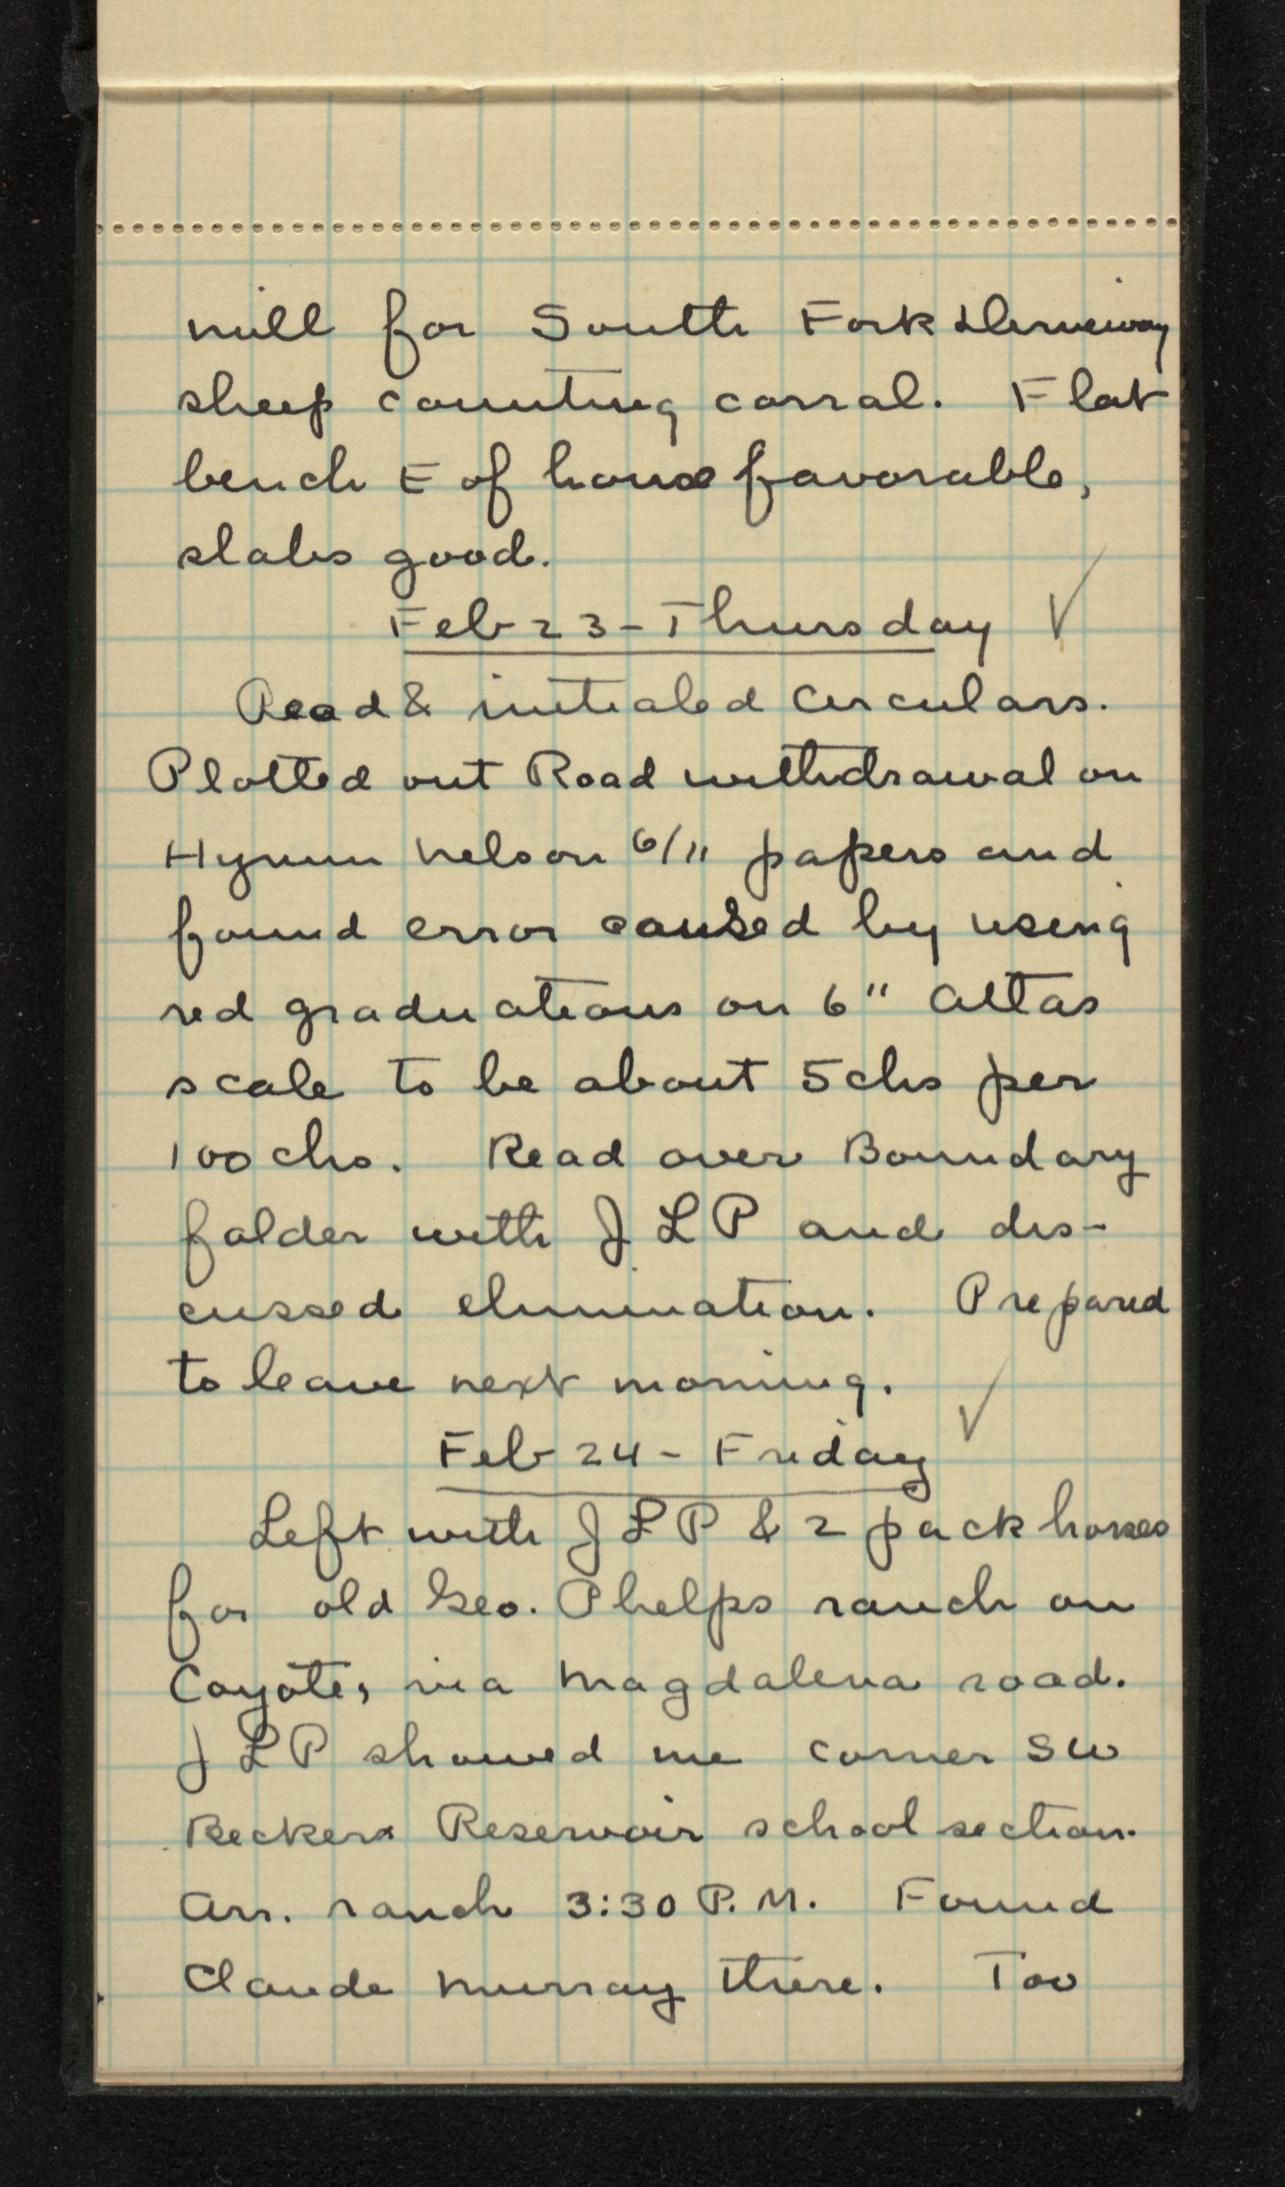 mill for South Fork Driveway
sheep counting corral. Flat
bench E of house favorable,
slabs good.
Feb 23 - Thursday ✓
Read & initialed Circulars.
Plotted out Road withdrawal on
Hyrum Nelson 6/11 papers and
found error caused by using
red graduations on 6" Atlas
scale to be about 5 chs per
100 chs. Read over Boundary
folder with JLP and dis-
cussed elimination. Prepared
to leave next morning.
Feb 24 - Friday ✓
Left with JLP & 2 pack horses
for old Geo. Phelps ranch on
Coyote, via Magdalena road.
JLP showed me corner SW
Beckers Reservoir school section.
Arr. ranch 3:30 P.M. Found
Claude Murray there. Too